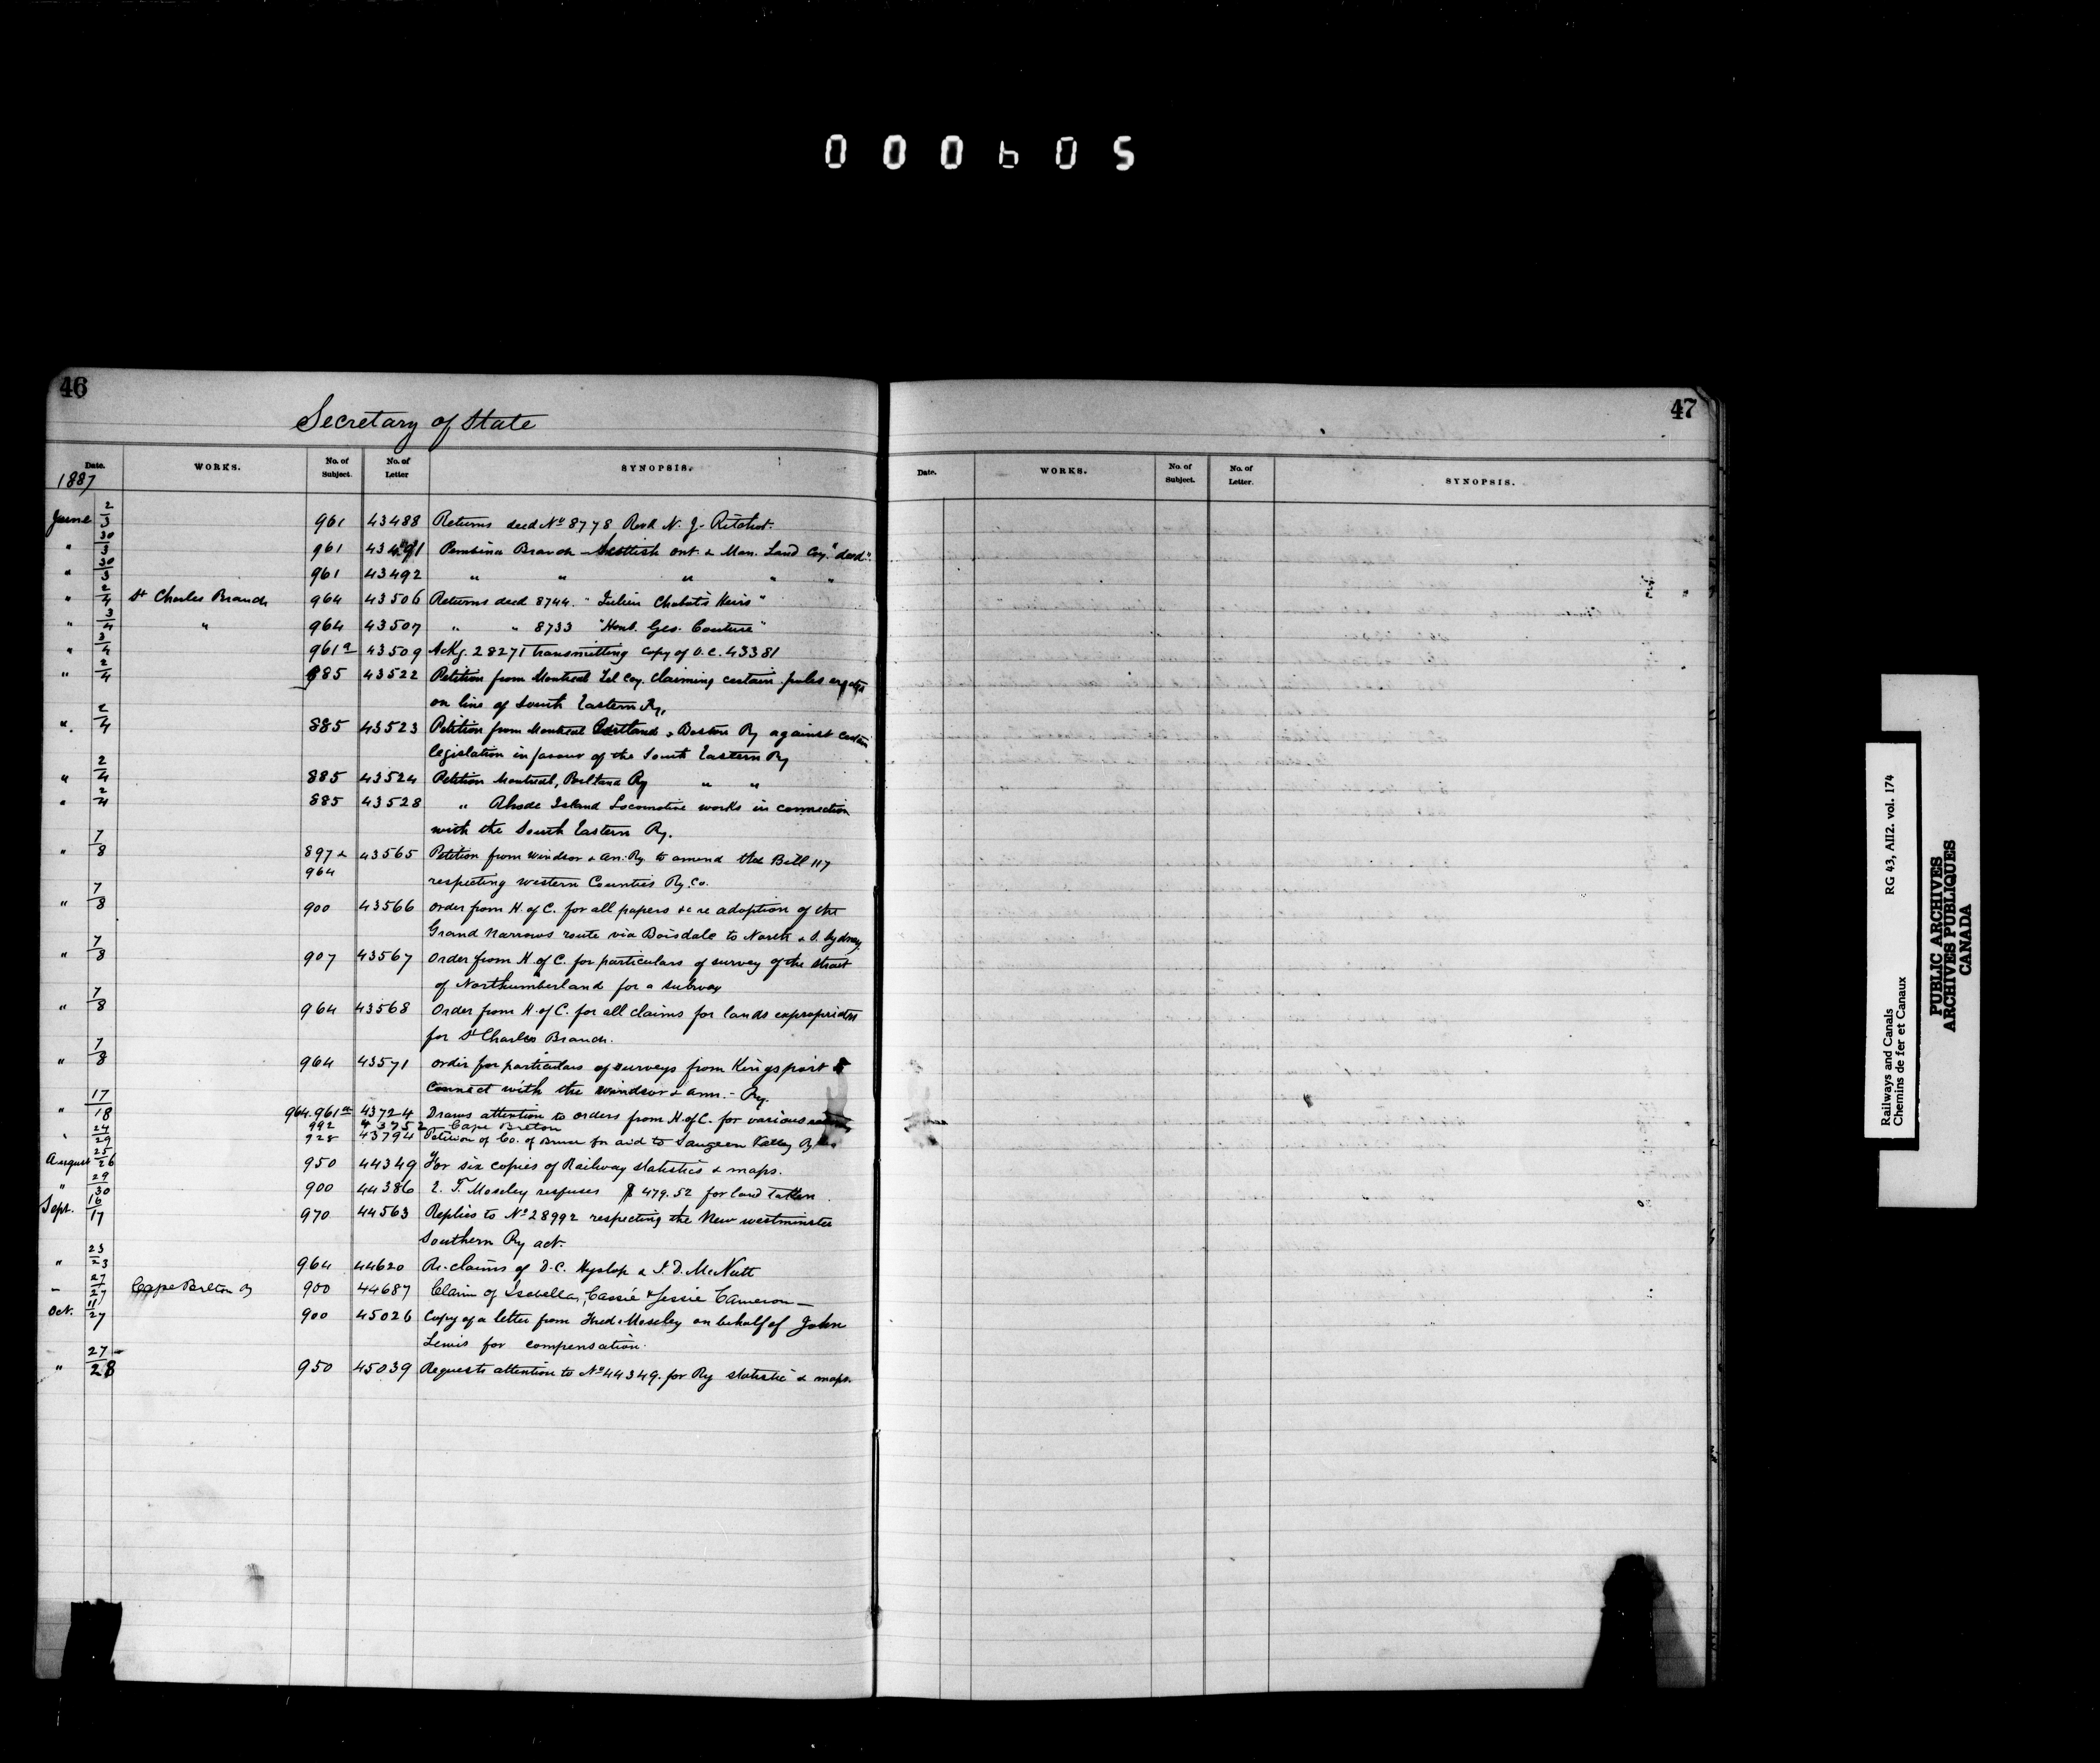 000605
46
Secretary of State
Date. WORKS. No. of Subject. No. of Letter SYNOPSIS.
1887
June 2/3 961 43488 Returns deed No 8778 Revd N. J. Ritchot.
" 30/3 961 43491 Pembina Branch - Scottish Ont. & Man. Land Coy. "deed".
" 30/3 961 43492 " " " " "
" 2/4 St Charles Branch 964 43506 Returns deed 8744. "Julien Chabot's Heirs"
" 3/4 " 964 43507 " " 8733 "Honl. Geo. Couture"
" 3/4 961a 43509 Ackg. 28271 transmitting copy of O.C. 43381
" 2/4 885 43522 Petition from Montreal Tel Coy. claiming certain poles
on line of South Eastern Ry.
" 2/4 885 43523 Petition from Montreal Portland & Boston Ry against certain
legislation in favour of the South Eastern Ry
" 2/4 885 43524 Petition Montreal, Portland Ry " "
" 2/4 885 43528 " Rhode Island Locomotive works in connection
with the South Eastern Ry.
" 7/8 897 & 43565 Petition from Windsor & An. Ry to amend the Bill 117
964 respecting Western Counties Ry. Co.
" 7/8 900 43566 Order from H. of C. for all papers &c re adoption of the
Grand Narrows route via Boisdale to North & S. Sydney
" 7/8 907 43567 Order from H. of C. for particulars of survey of the strait
of Northumberland for a subway
" 7/8 964 43568 Order from H. of C. for all claims for lands expropriated
for St Charles Branch.
" 7/8 964 43571 Order for particulars of surveys from Kingsport to
connect with the Windsor & Ann. Ry.
" 17/18 964.961a 43724 Draws attention to orders from H. of C. for various returns
992 43752 Cape Breton
" 24/29 928 43794 Petition of Co. of Bruce for aid to Saugeen Valley Ry
August 25/26 950 44349 For six copies of Railway statistics & maps.
" 29/30 900 44386 E. T. Moseley refuses $479.52 for land taken
Sept. 16/17 970 44563 Replies to No 28992 respecting the New Westminster
Southern Ry act.
" 23/23 964 44620 Re-claims of D. C. Hyslop & I. D. McNutt
- 27/27 Cape Breton Ry 900 44687 Claim of Isabella, Cassie & Jessie Cameron —
Oct. 11/27 900 45026 Copy of a letter from Fred. Moseley on behalf of John
Lewis for compensation.
" 27/28 950 45039 Requests attention to No 44349. for Ry statistic & maps.
47
Date. WORKS. No. of Subject. No. of Letter. SYNOPSIS.
Railways and Canals RG 43, AII2. vol. 174
Chemins de fer et Canaux
PUBLIC ARCHIVES
ARCHIVES PUBLIQUES
CANADA